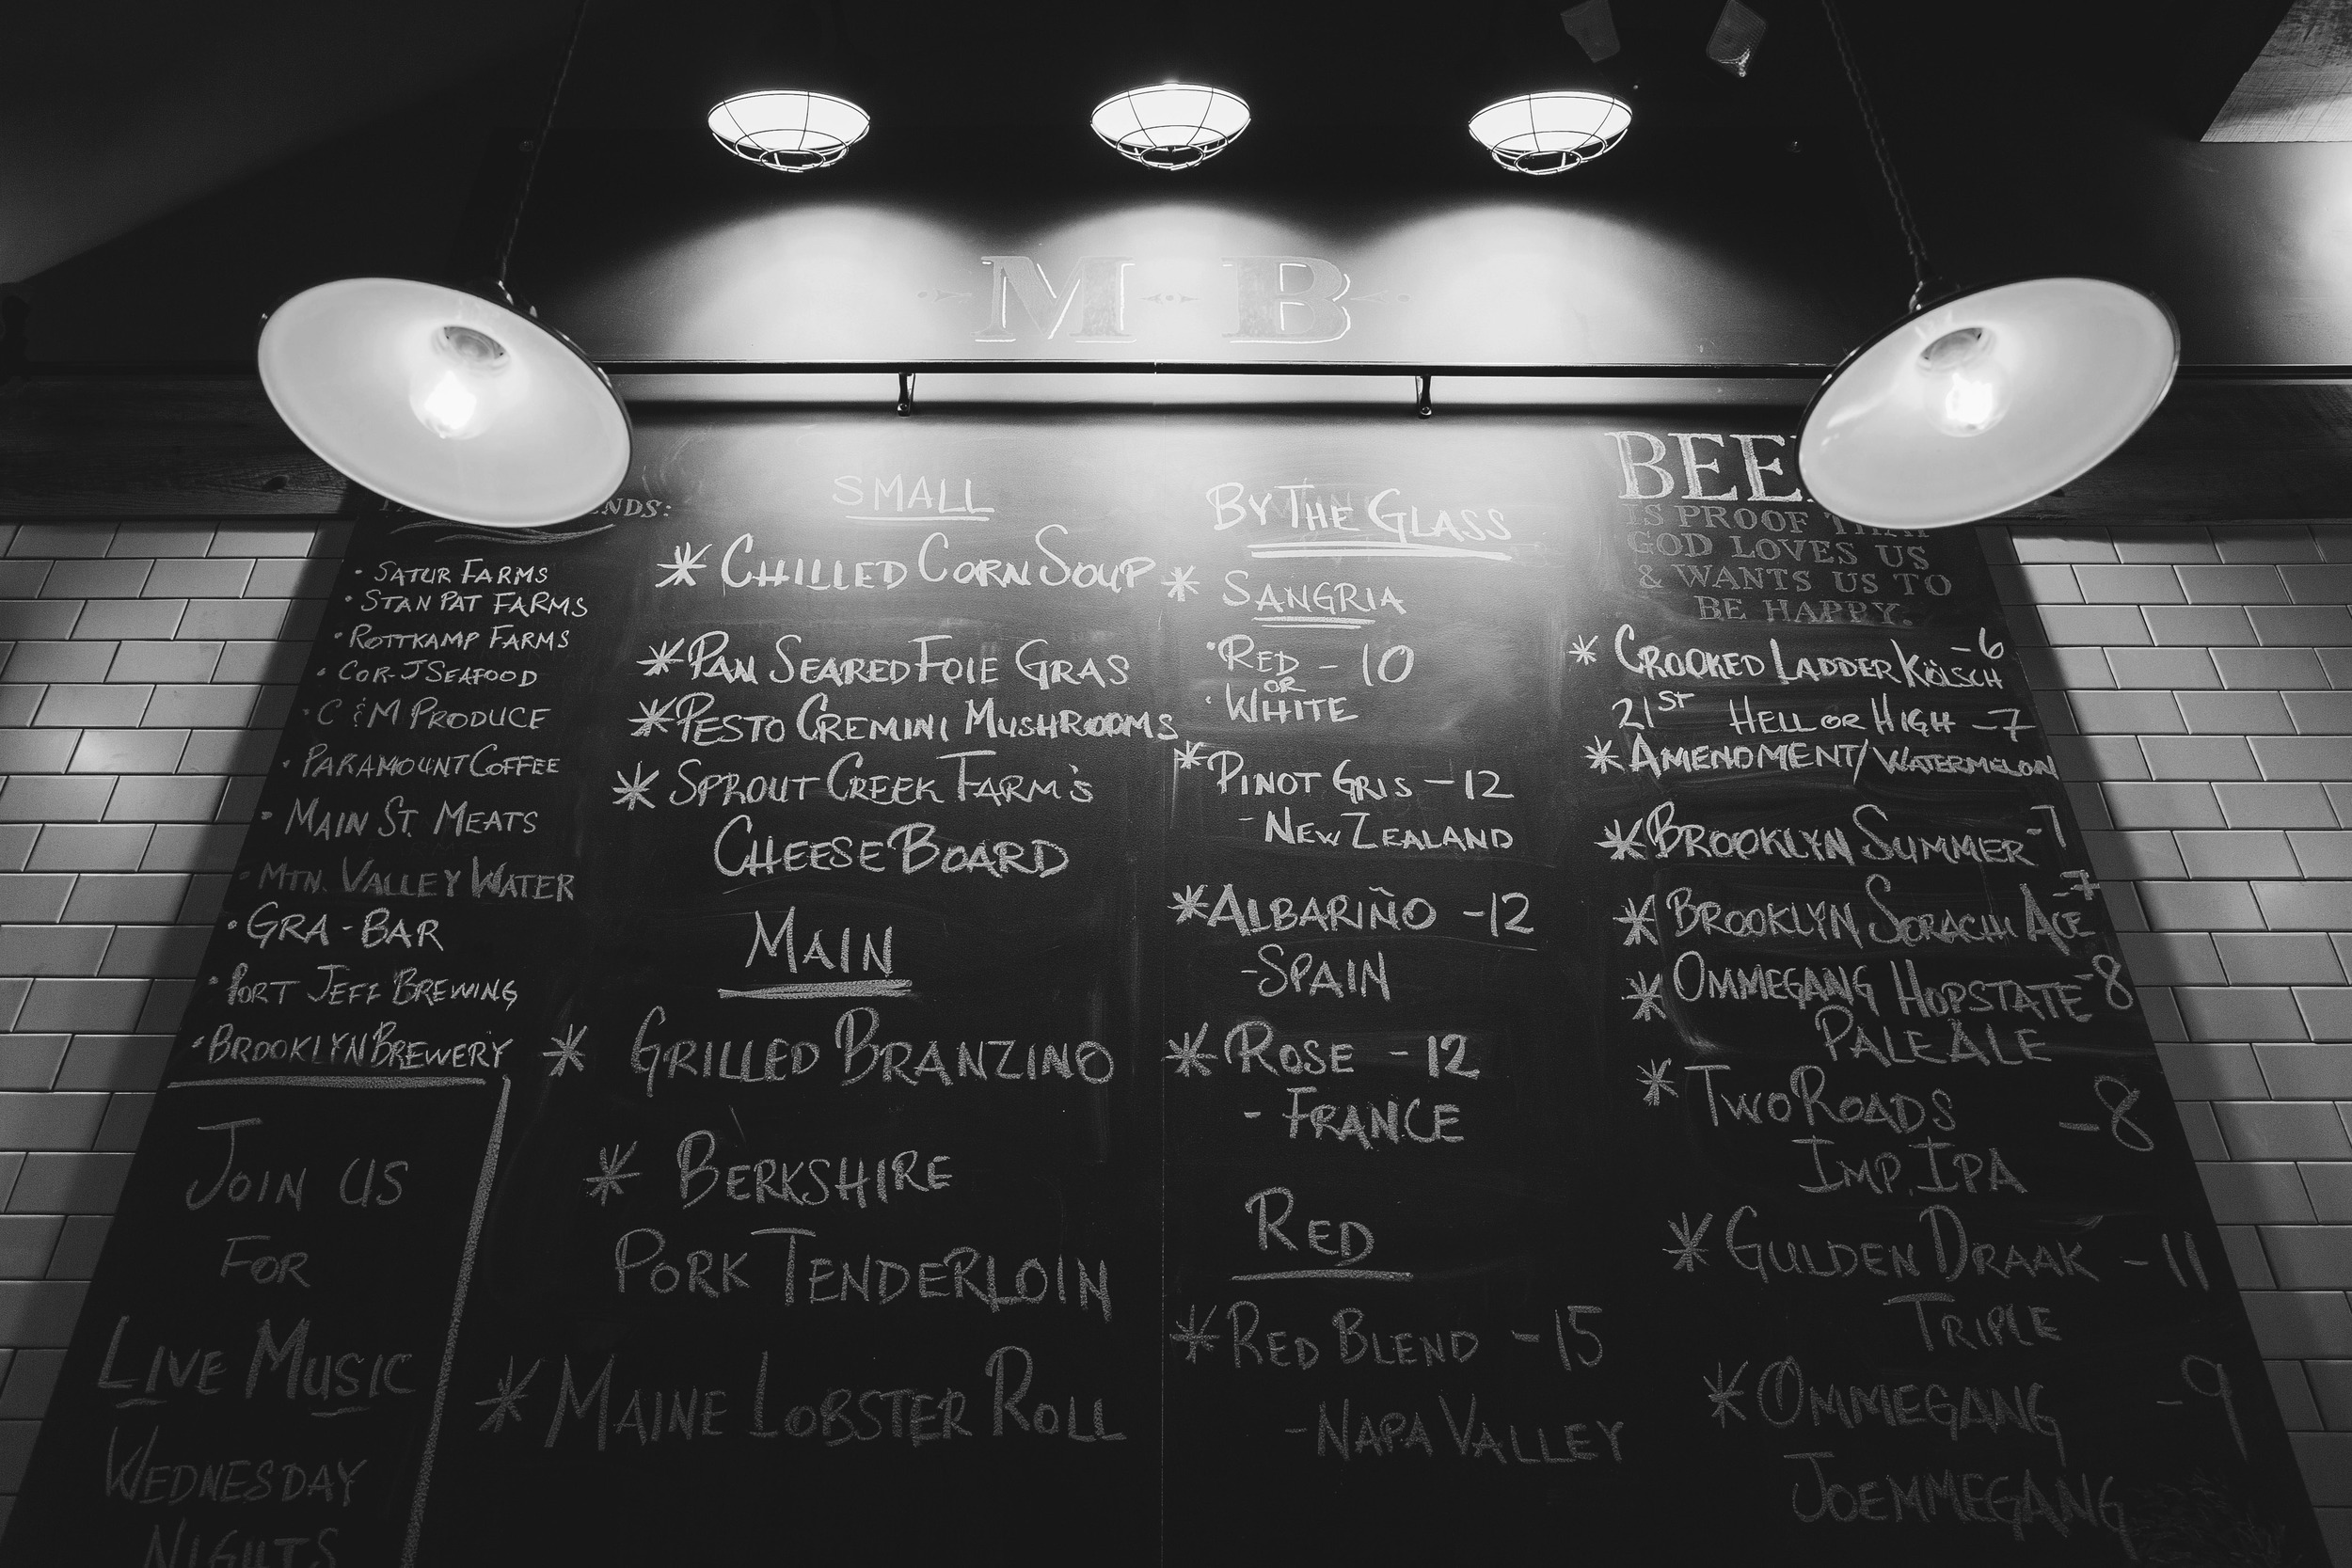 M B
NDS:
• SATUR FARMS
• STAN PAT FARMS
• ROTTKAMP FARMS
• COR-J SEAFOOD
• C & M PRODUCE
• PARAMOUNT COFFEE
• MAIN ST. MEATS
• MTN. VALLEY WATER
• GRA-BAR
• PORT JEFF BREWING
• BROOKLYN BREWERY
JOIN US
FOR
LIVE MUSIC
WEDNESDAY
NIGHTS
SMALL
* CHILLED CORN SOUP
* PAN SEARED FOIE GRAS
* PESTO CREMINI MUSHROOMS
* SPROUT CREEK FARM'S
CHEESE BOARD
MAIN
* GRILLED BRANZINO
* BERKSHIRE
PORK TENDERLOIN
* MAINE LOBSTER ROLL
BY THE GLASS
* SANGRIA
• RED - 10
OR
• WHITE
* PINOT GRIS - 12
- NEW ZEALAND
* ALBARIÑO - 12
- SPAIN
* ROSE - 12
- FRANCE
RED
* RED BLEND - 15
- NAPA VALLEY
BEE
IS PROOF THAT
GOD LOVES US
& WANTS US TO
BE HAPPY.
* CROOKED LADDER KÖLSCH - 6
21ST HELL OR HIGH - 7
* AMENDMENT/ WATERMELON
* BROOKLYN SUMMER - 7
* BROOKLYN SORACHI ACE - 7
* OMMEGANG HOPSTATE - 8
PALE ALE
* TWO ROADS - 8
IMP. IPA
* GULDEN DRAAK - 11
TRIPLE
* OMMEGANG - 9
JOEMMEGANG